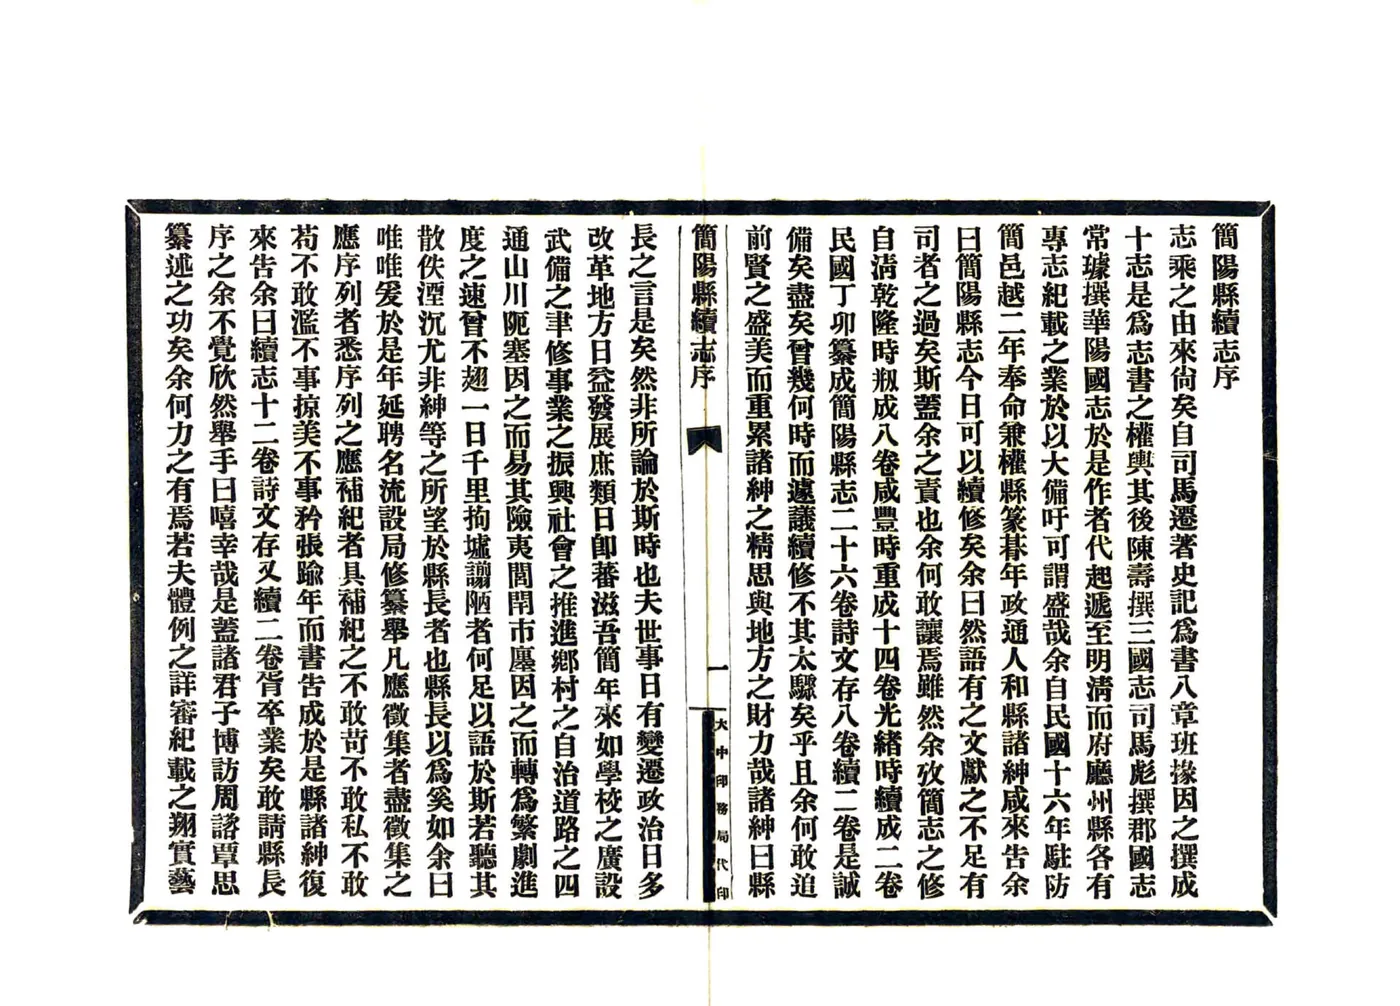 簡陽縣續志序
志乘之由來尙矣自司馬遷著史記爲書八章班掾因之撰成
十志是爲志書之權輿其後陳壽撰三國志司馬彪撰郡國志
常璩撰華陽國志於是作者代起遞至明淸而府廳州縣各有
專志紀載之業於以大備吁可謂盛哉余自民國十六年駐防
簡邑越二年奉命兼權縣篆朞年政通人和縣諸紳咸來告余
曰簡陽縣志今日可以續修矣余曰然語有之文獻之不足有
司者之過矣斯蓋余之責也余何敢讓焉雖然余攷簡志之修
自淸乾隆時剏成八卷咸豐時重成十四卷光緒時續成二卷
民國丁卯纂成簡陽縣志二十六卷詩文存八卷續二卷是誠
備矣盡矣曾幾何時而遽議續修不其太驟矣乎且余何敢追
前賢之盛美而重累諸紳之精思與地方之財力哉諸紳曰縣
簡陽縣續志序
一
大中印務局代印
長之言是矣然非所論於斯時也夫世事日有變遷政治日多
改革地方日益發展庶類日卽蕃滋吾簡年來如學校之廣設
武備之聿修事業之振興社會之推進鄉村之自治道路之四
通山川阨塞因之而易其險夷閭閈市廛因之而轉爲繁劇進
度之速曾不翅一日千里拘墟謭陋者何足以語於斯若聽其
散佚湮沉尤非紳等之所望於縣長者也縣長以爲奚如余曰
唯唯爰於是年延聘名流設局修纂舉凡應徵集者盡徵集之
應序列者悉序列之應補紀者具補紀之不敢苛不敢私不敢
苟不敢濫不事掠美不事矜張踰年而書告成於是縣諸紳復
來告余曰續志十二卷詩文存又續二卷胥卒業矣敢請縣長
序之余不覺欣然舉手曰嘻幸哉是蓋諸君子博訪周諮覃思
纂述之功矣余何力之有焉若夫體例之詳審紀載之翔實藝